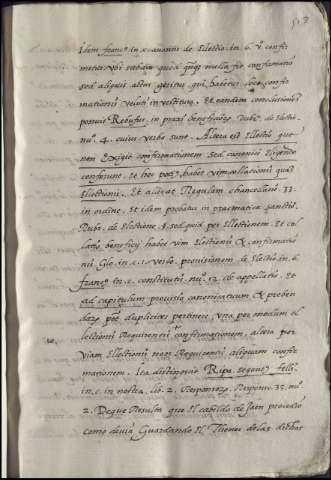 513
Idem franc' in c. cum in de Electio. in. 6. v. confir
matur. ubi quod nulla sit confirmatio
sed aliquis altus qui habetur loco confir
mationis velud investitura. Et eandem conclusionem
ponit Rebufus, in praxi beneficior. Rubr. de Electio.
nu. 4. cuius verba sunt. Altera est Electio que
non Exigit confirmationem sed canonici Eligendo
conferunt. et hec habet vim collationis quasi
Electionis. Et allegat Regulam chancellerie 33.
in ordine. Et idem probatur in pracmatica sanctio.
Rubr. de Electione. §. sed quid per Electionem. Et col
latio beneficij habet vim Electionis & confirmatio
nis Glo. in. c. 1. verbo. provisionem. de Electio. in. 6.
franc' in. c. constitutis. nu. 12. de appellatio. Et
ad capitulum provisio canonicatuum & preben
darum potest dupliciter pertinere, una per modum e
lectionis Requirentis confirmationem, altera per
viam Electionis non Requirentis aliquam confir
mationem. Ita distinguit Ripa. sequens feli.
in. c. in nostra. lib. 2. Responsor. Respons. 35. nu.
2. De que Resulta que el cabildo de Jaen procedio
como devia Guardando El Thenor de las dichas